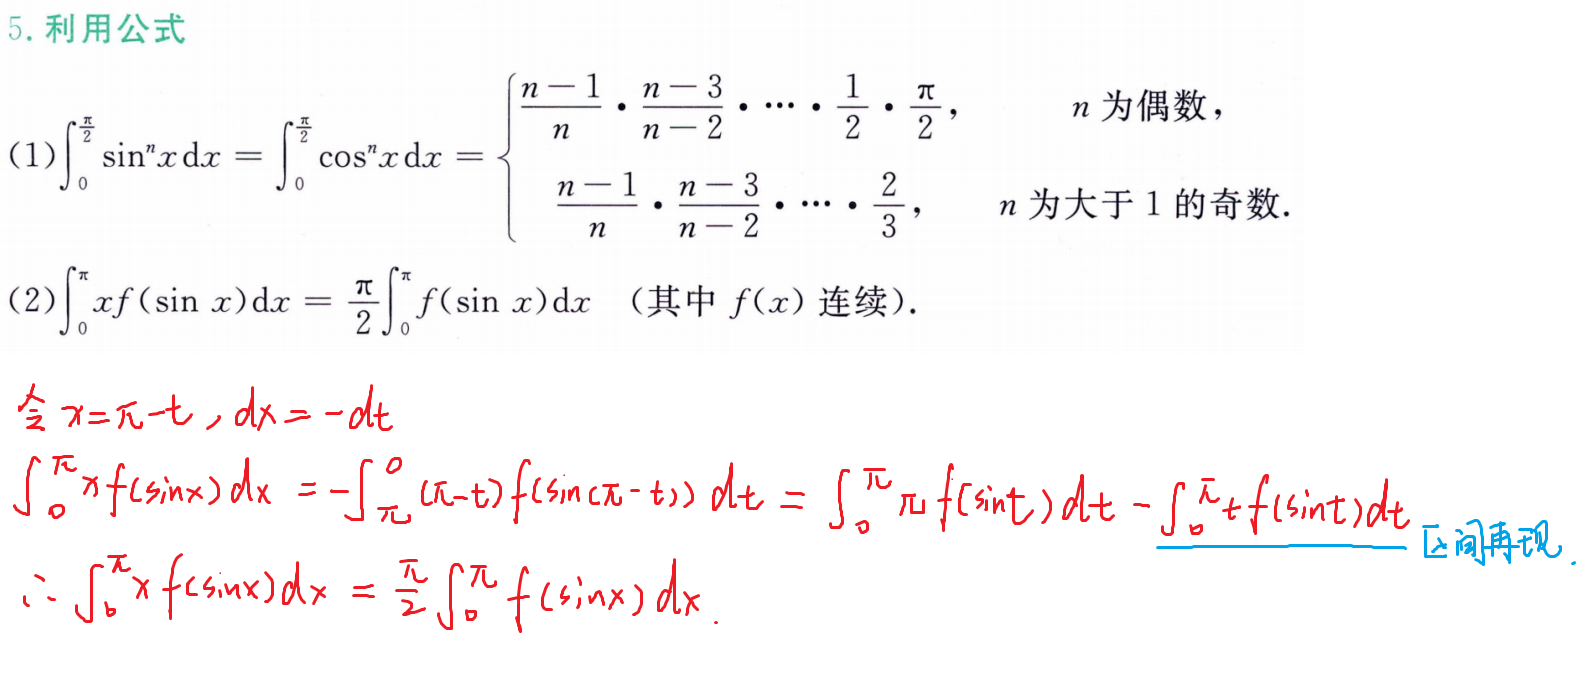 5. 利用公式
(1) ∫_0^{π/2} sinⁿx dx = ∫_0^{π/2} cosⁿx dx = { (n-1)/n · (n-3)/(n-2) · ⋯ · 1/2 · π/2, n 为偶数,
(n-1)/n · (n-3)/(n-2) · ⋯ · 2/3, n 为大于 1 的奇数.
(2) ∫_0^π xf(sin x)dx = π/2 ∫_0^π f(sin x)dx (其中 f(x) 连续).
令 x=π-t, dx=-dt
∫_0^π xf(sinx)dx = -∫_π^0 (π-t)f(sin(π-t))dt = ∫_0^π πf(sint)dt - ∫_0^π tf(sint)dt 区间再现.
∴ ∫_0^π xf(sinx)dx = π/2 ∫_0^π f(sinx)dx.